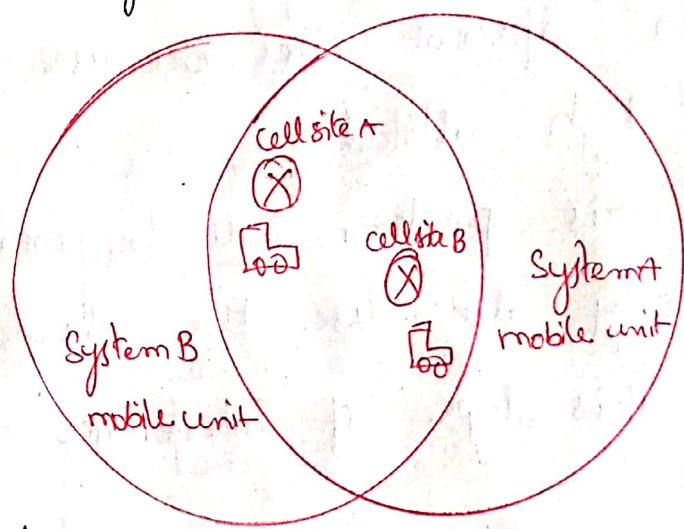 Cell site A
Cell site B
System A
mobile unit
System B
mobile unit